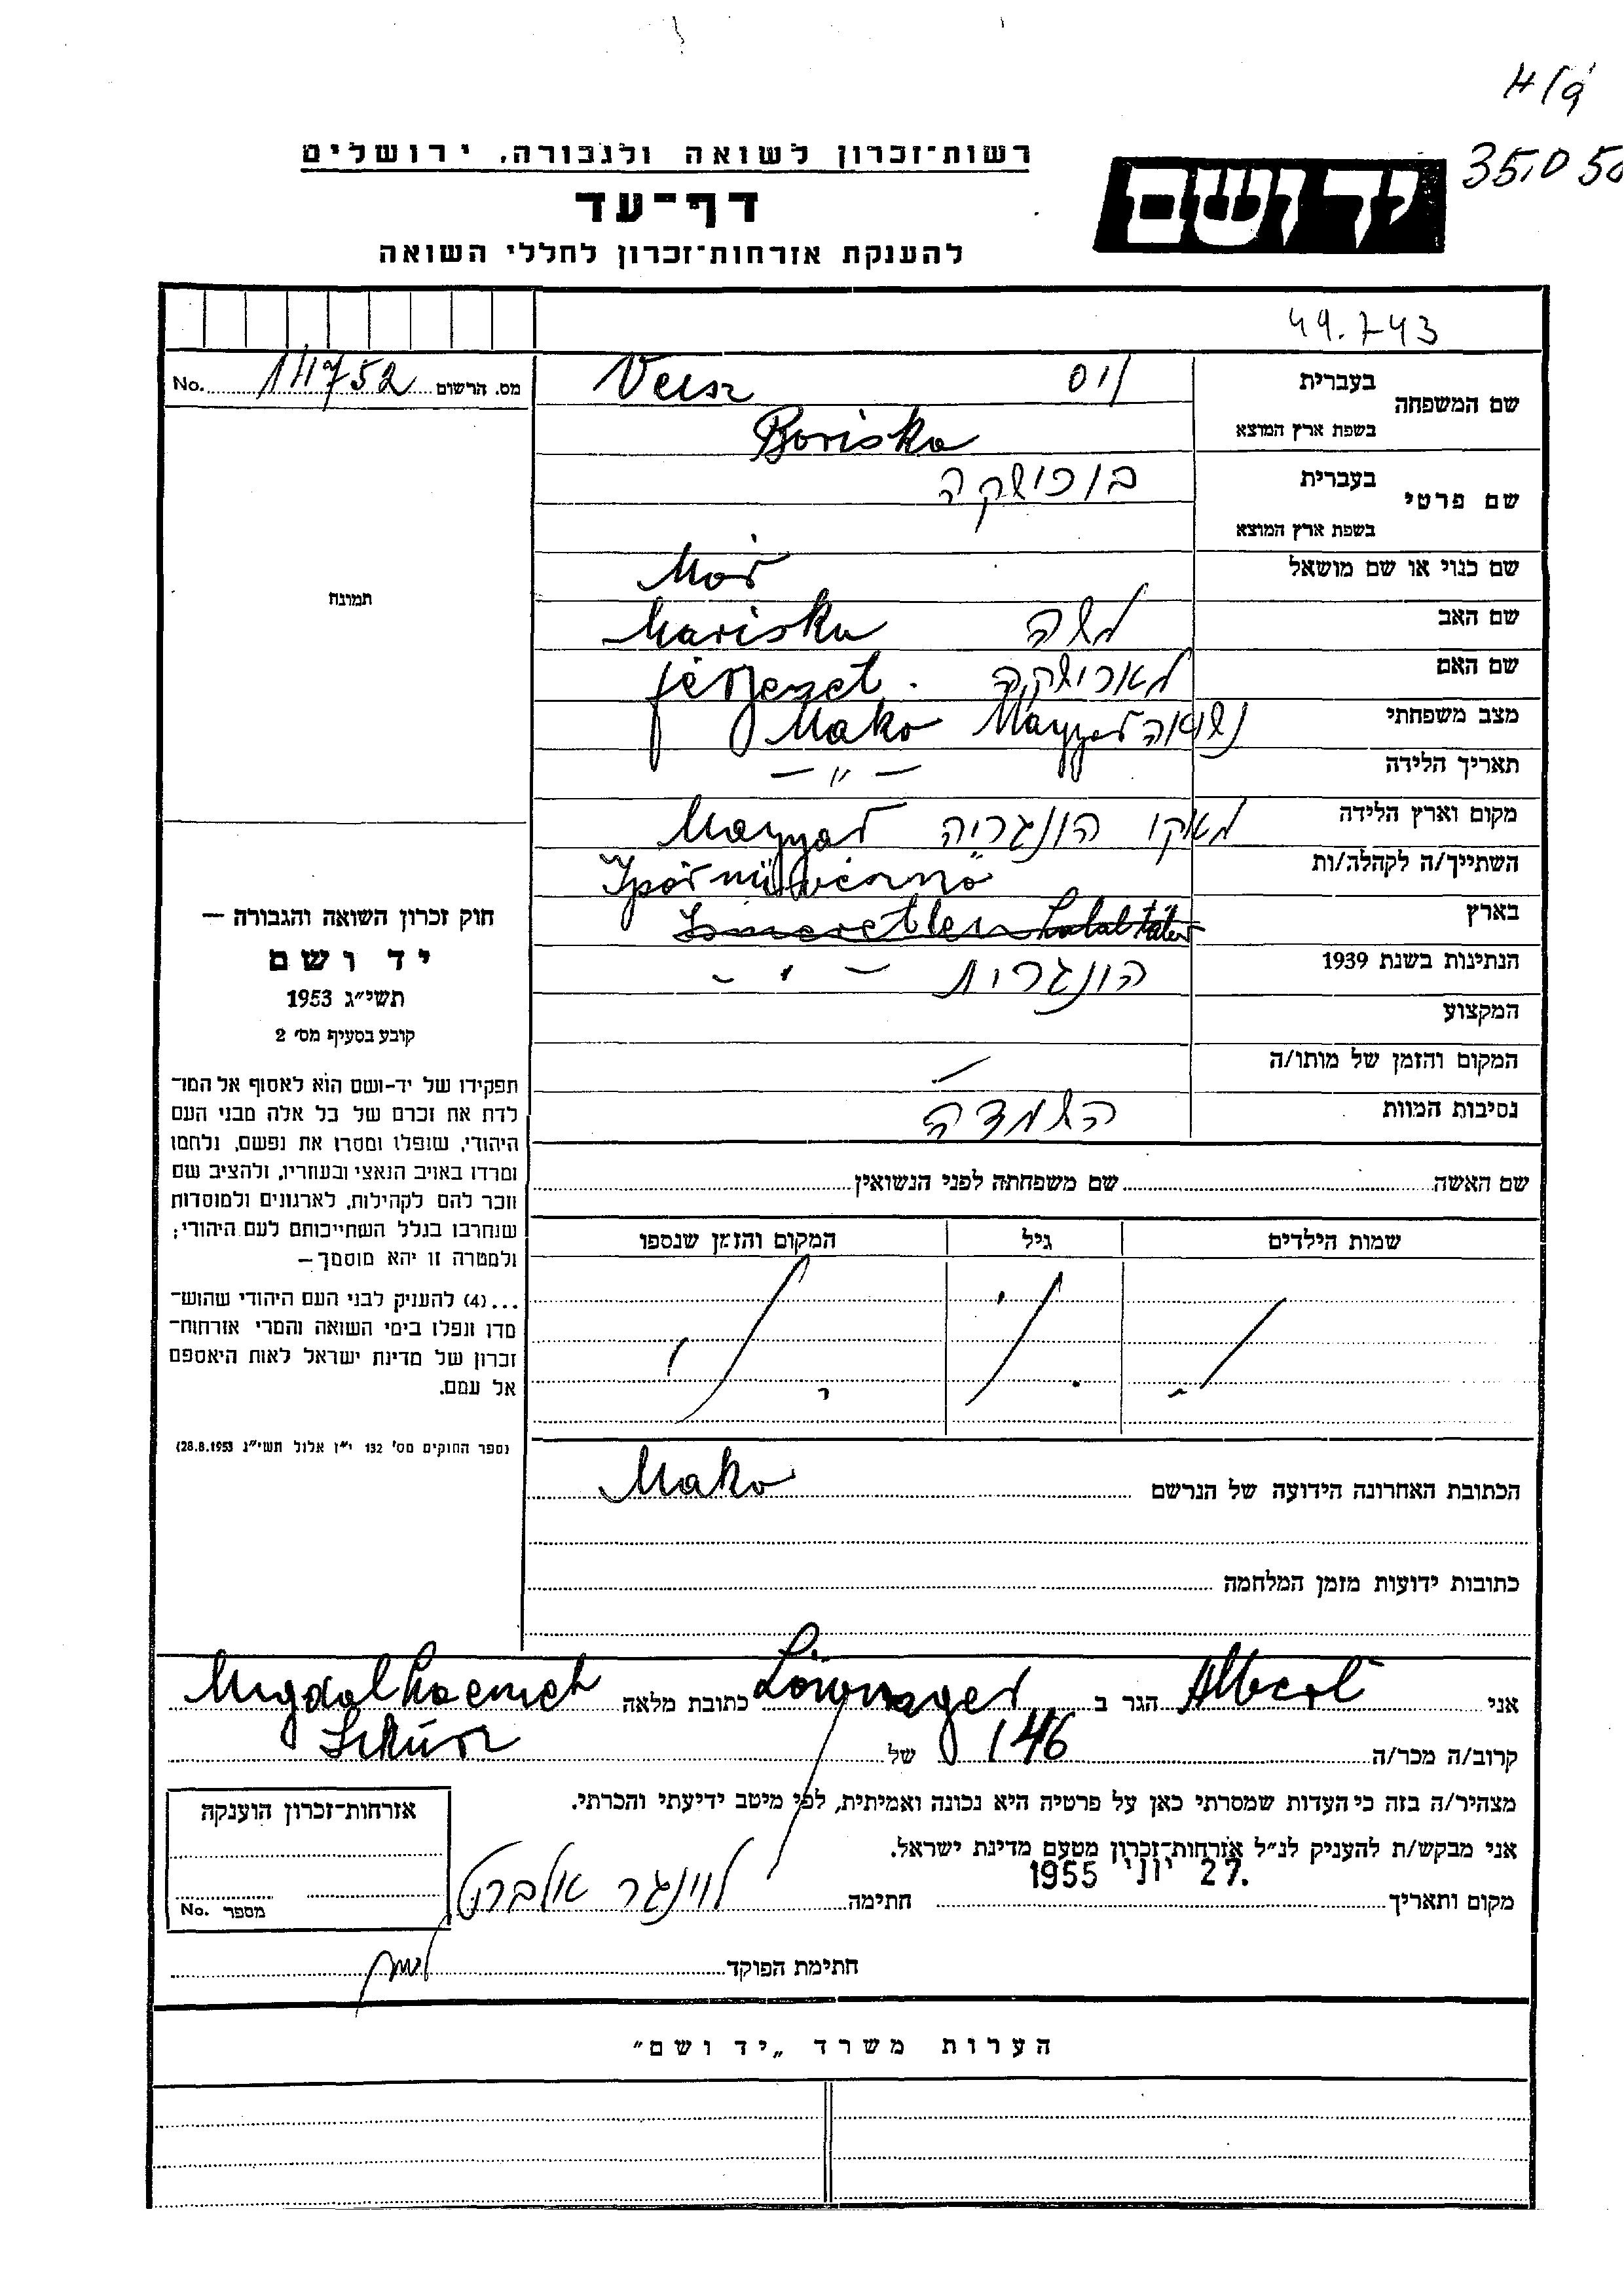 35.050
רשות־זכרון לשואה ולגבורה, ירושלים
יד ושם
דף־עד
להענקת אזרחות־זכרון לחללי השואה
49.743
שם המשפחה
בעברית
ויס Veisz
בשפת ארץ המוצא
Boriska
שם פרטי
בעברית
בורישקה
בשפת ארץ המוצא
שם כנוי או שם מושאל
Mór
שם האב
משה Mariska
שם האם
מארישקה férjezet
מצב משפחתי
נשואה Magyar Mako
תאריך הלידה
— " —
מקום וארץ הלידה
מאקו הונגריה Magyar
השתייך/ה לקהלה/ות
Iparművésznő
בארץ
הנתינות בשנת 1939
הונגרית
המקצוע
המקום והזמן של מותו/ה
נסיבות המוות
השמדה
שם האשה
שם משפחתה לפני הנשואין
שמות הילדים
גיל
המקום והזמן שנספו
הכתובת האחרונה הידועה של הנרשם
Mako
כתובות ידועות מזמן המלחמה
No. 111752 מס. הרשום
תמונה
חוק זכרון השואה והגבורה —
יד ושם
תשי״ג 1953
קובע בסעיף מס׳ 2
תפקידו של יד-ושם הוא לאסוף אל המו־
לדת את זכרם של כל אלה מבני העם
היהודי, שנפלו ומסרו את נפשם, נלחמו
ומרדו באויב הנאצי ובעוזריו, ולהציב שם
וזכר להם לקהילות, לארגונים ולמוסדות
שנחרבו בגלל השתייכותם לעם היהודי;
ולמטרה זו יהא מוסמך —
...(4) להעניק לבני העם היהודי שהוש־
מדו ונפלו בימי השואה והמרי אזרחות־
זכרון של מדינת ישראל לאות היאספם
אל עמם.
(ספר החוקים מס׳ 132 י״ז אלול תשי״ג 28.8.1953)
אני Albert הגר ב Löwinger כתובת מלאה Migdal haemek
קרוב/ה מכר/ה 146 של
מצהיר/ה בזה כי העדות שמסרתי כאן על פרטיה היא נכונה ואמיתית, לפי מיטב ידיעתי והכרתי.
אני מבקש/ת להעניק לנ״ל אזרחות־זכרון מטעם מדינת ישראל.
27. יוני 1955
מקום ותאריך חתימה לוינגר אלברט
אזרחות־זכרון הוענקה
מספר No.
חתימת הפוקד
הערות משרד „יד ושם״